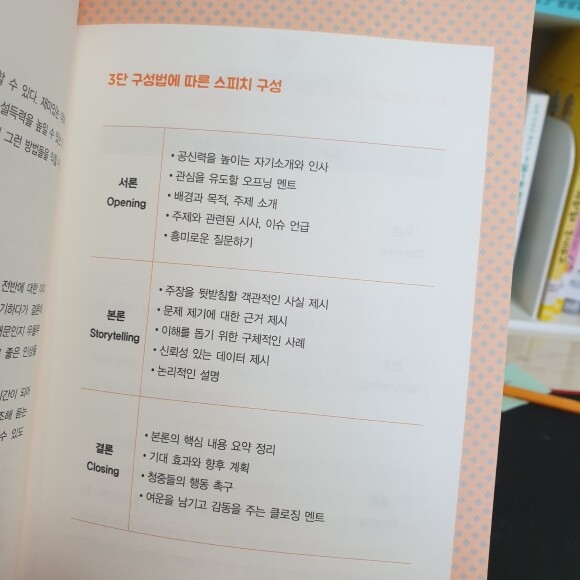 할 수 있다. 재미있는
설득력을 높일 수 있는
그런 방법들을
전반에 대한
기하다가 결론
때문인지 우물쭈
좋은 인상을
시간이 되어
조해 듣는
수 있도
3단 구성법에 따른 스피치 구성
서론
Opening
• 공신력을 높이는 자기소개와 인사
• 관심을 유도할 오프닝 멘트
• 배경과 목적, 주제 소개
• 주제와 관련된 시사, 이슈 언급
• 흥미로운 질문하기
본론
Storytelling
• 주장을 뒷받침할 객관적인 사실 제시
• 문제 제기에 대한 근거 제시
• 이해를 돕기 위한 구체적인 사례
• 신뢰성 있는 데이터 제시
• 논리적인 설명
결론
Closing
• 본론의 핵심 내용 요약 정리
• 기대 효과와 향후 계획
• 청중들의 행동 촉구
• 여운을 남기고 감동을 주는 클로징 멘트